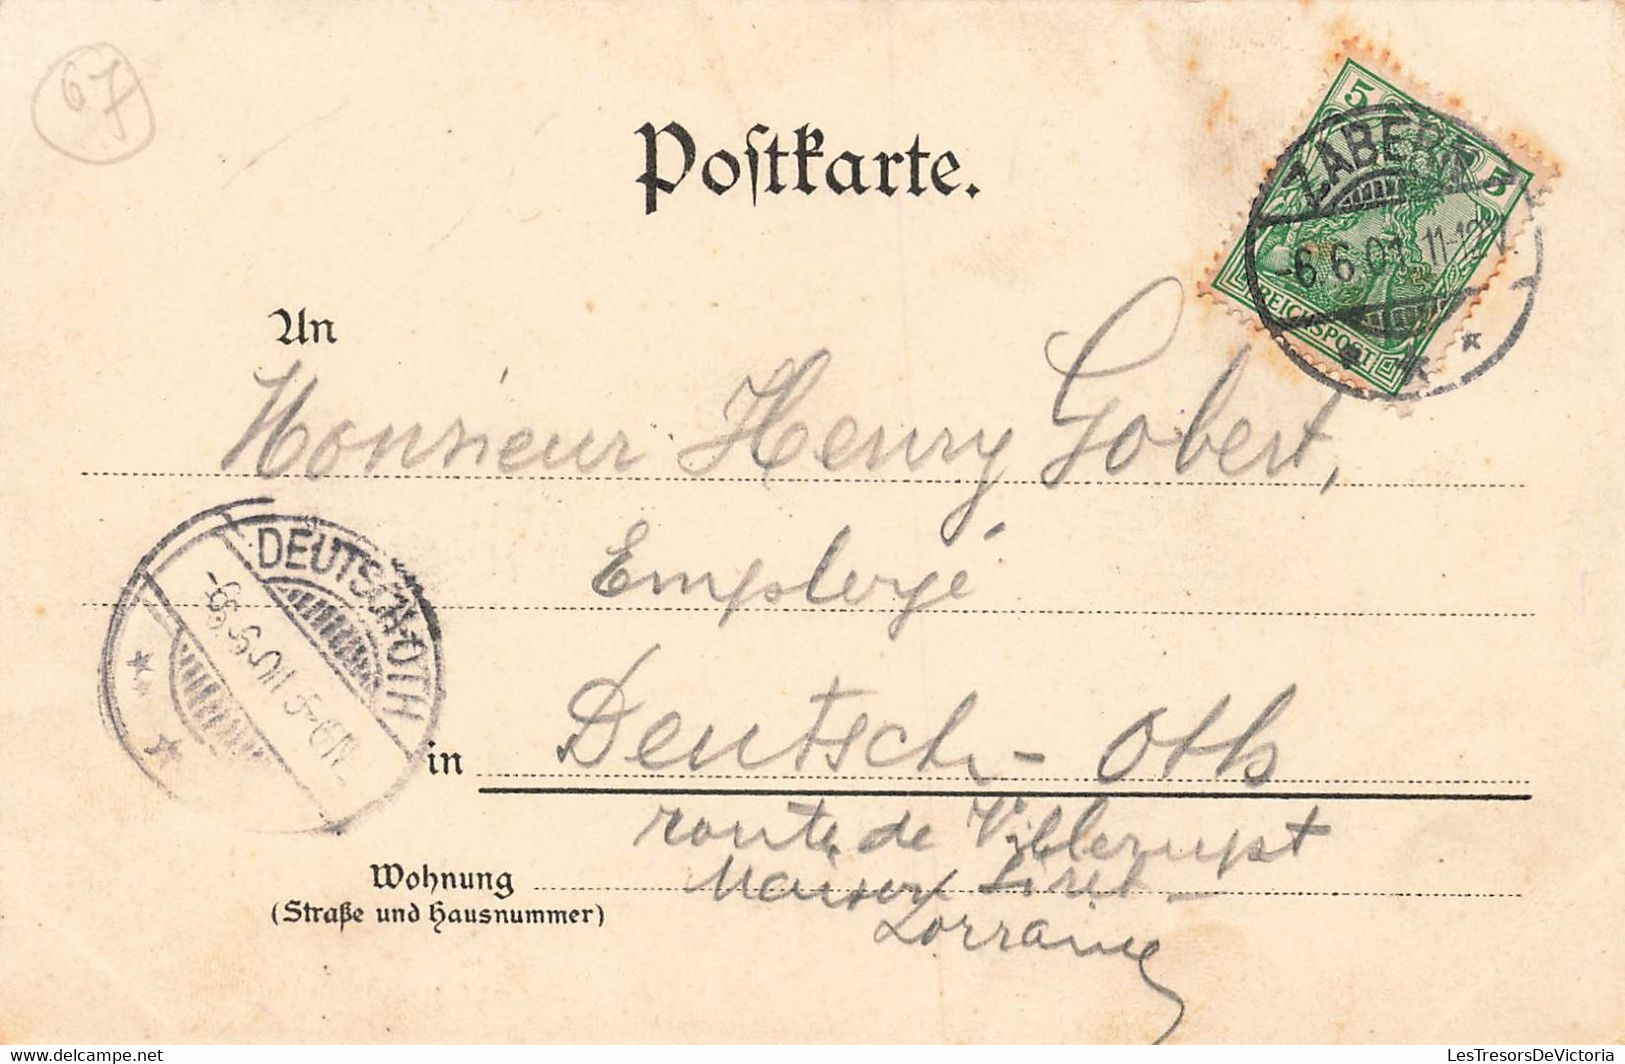 67
Postkarte.
5 5
REICHSPOST
ZABERN
-6.6.01 11-12V.
An
Monsieur Henry Gobert,
Employé
DEUTSCH-OTH
-6.6.01 5-6N
in Deutsch-Oth
route de Villerupt
Wohnung Maison
(Straße und Hausnummer)
Lorraine
www.delcampe.net
LesTresorsDeVictoria